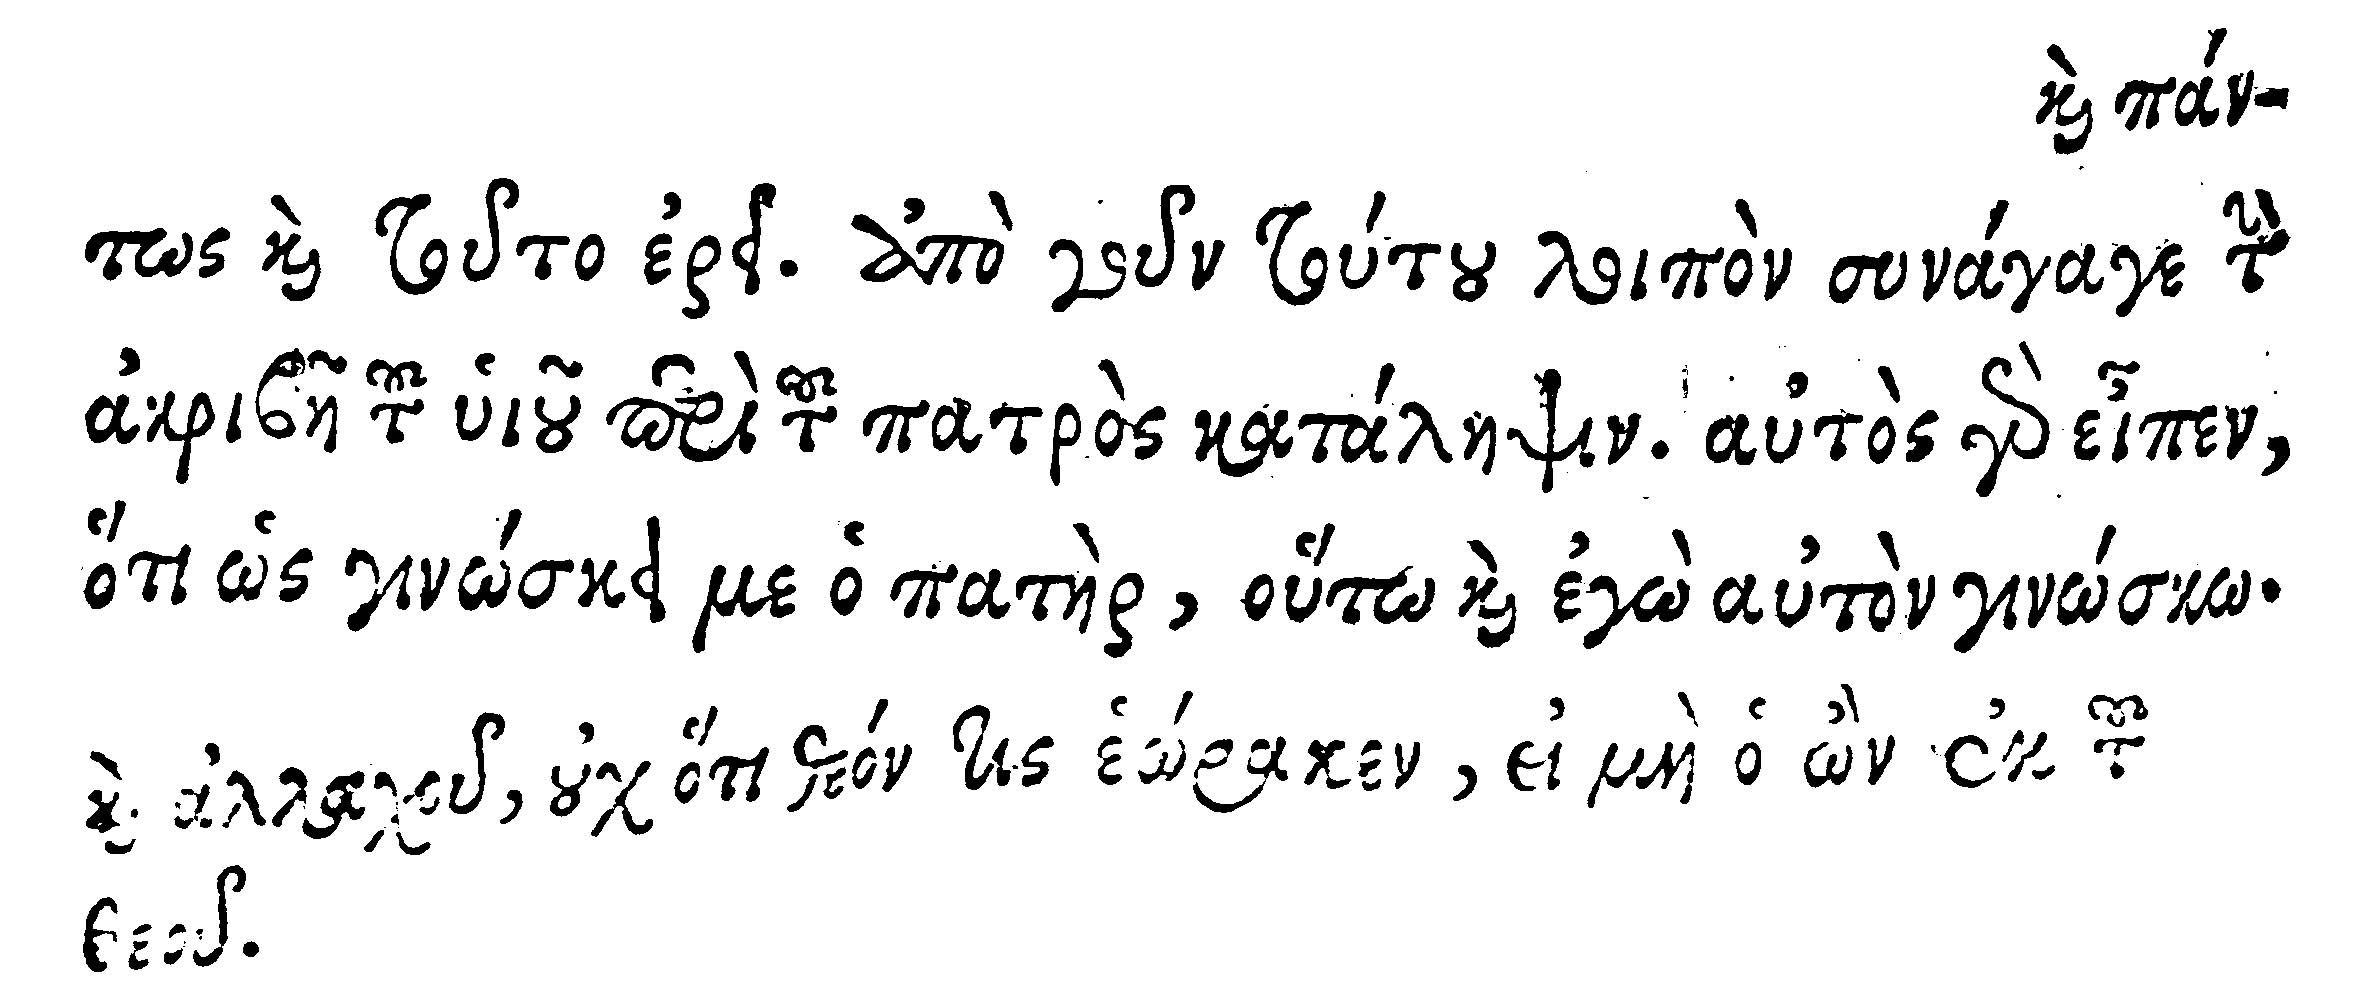 καὶ πάν-
τως καὶ τοῦτο ἐρεῖ. ἀπὸ γοῦν τούτου λοιπὸν συνάγαγε τὴν
ἀκριβῆ τοῦ υἱοῦ περὶ τοῦ πατρὸς κατάληψιν. αὐτὸς γὰρ εἶπεν,
ὅτι ὡς γινώσκει με ὁ πατὴρ, οὕτω καὶ ἐγὼ αὐτὸν γινώσκω.
καὶ ἀλλαχοῦ, οὐχ ὅτι θεόν τις ἑώρακεν, εἰ μὴ ὁ ὢν ἐκ τοῦ
θεοῦ.